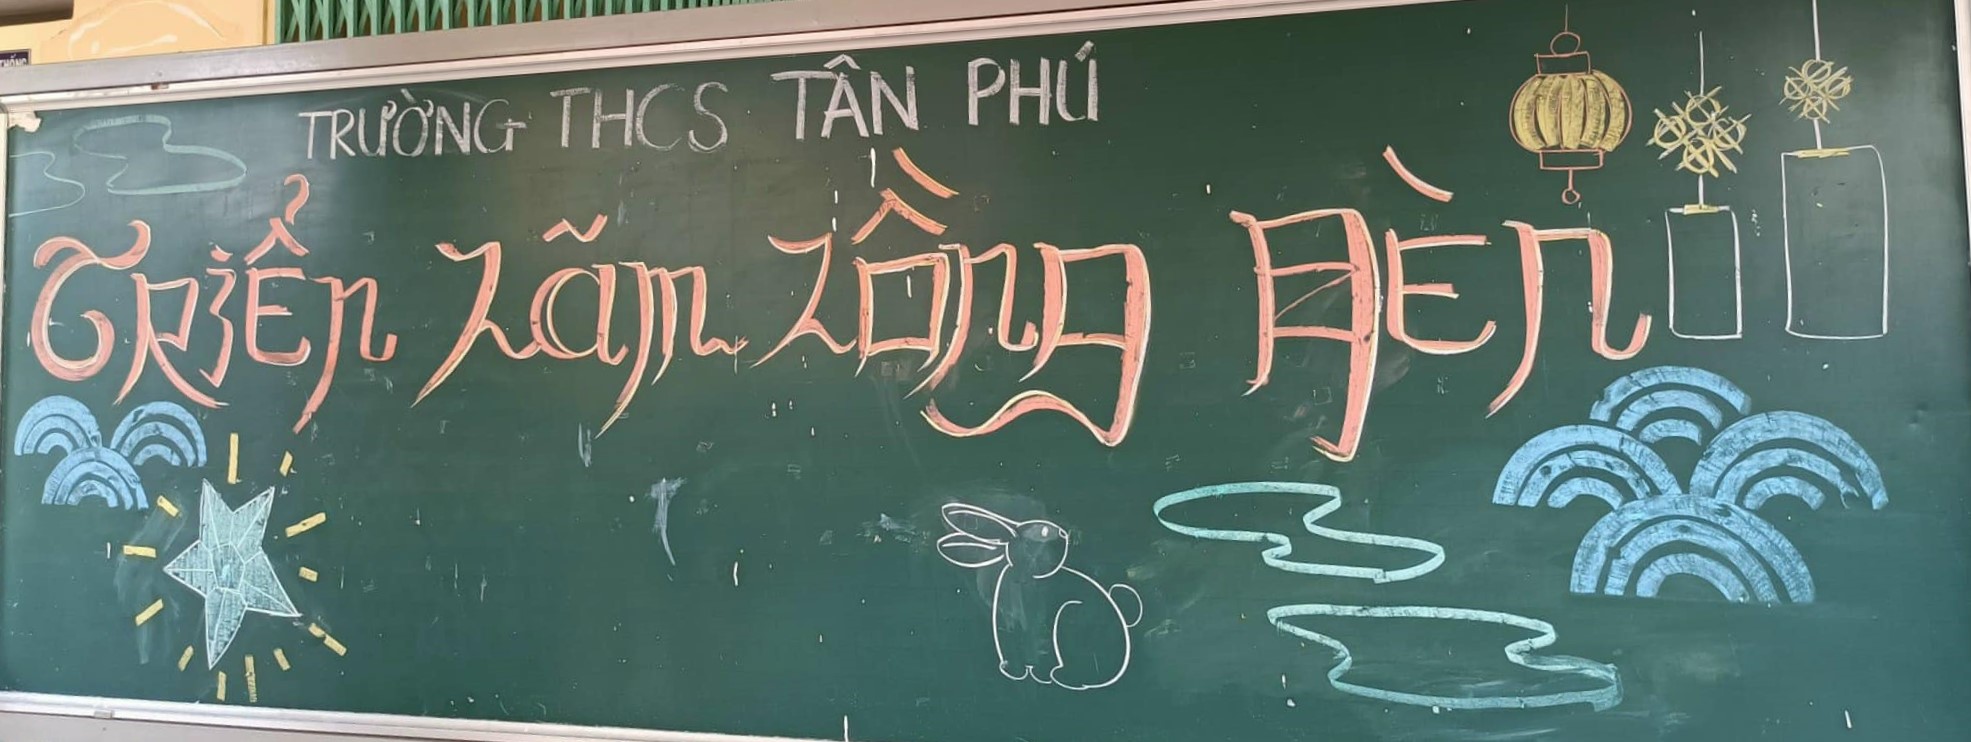 TRƯỜNG THCS TÂN PHÚ
TRIỂn Lãm Lồng ĐÈn